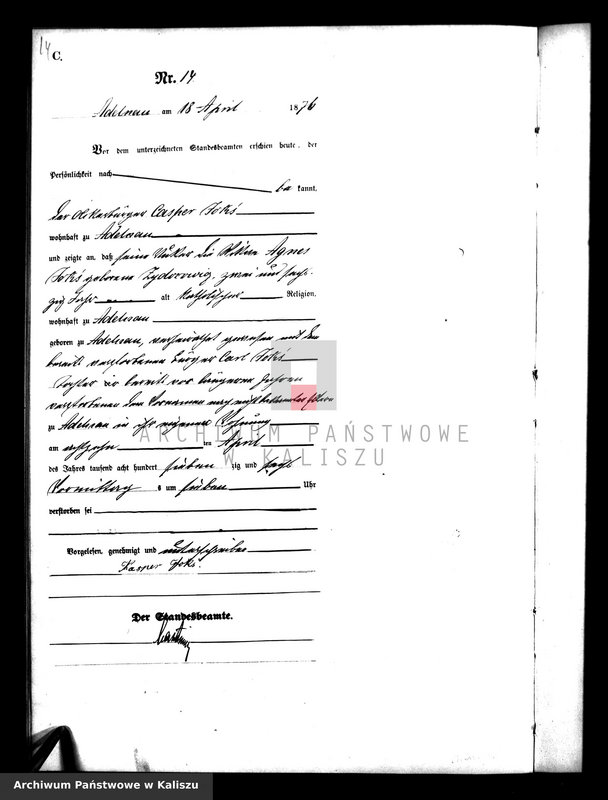 14
C.
Nr. 14
Adelnau am 18 April 1876
Vor dem unterzeichneten Standesbeamten erschien heute, der
Persönlichkeit nach
bekannt,
der Ackerbürger Casper Foks
wohnhaft zu Adelnau
und zeigte an, daß seine Mutter die Wittwe Agnes
Foks geborene zwei und
zig Jahr alt katholischer Religion,
wohnhaft zu Adelnau
geboren zu Adelnau, verheirathet gewesen mit dem
bereits verstorbenen Bürger Carl Foks
Tochter der bereits vor längeren Jahren
verstorbenen dem Vornamen nach nicht bekannten
zu Adelnau in ihre Wohnung
am achtzehn ten April
des Jahres tausend acht hundert sieben zig und sechs
Vormittags um sieben Uhr
verstorben sei
Vorgelesen, genehmigt und unterschrieben
Kasper Foks.
Der Standesbeamte.
ARCHIWUM PAŃSTWOWE
W KALISZU
Archiwum Państwowe w Kaliszu